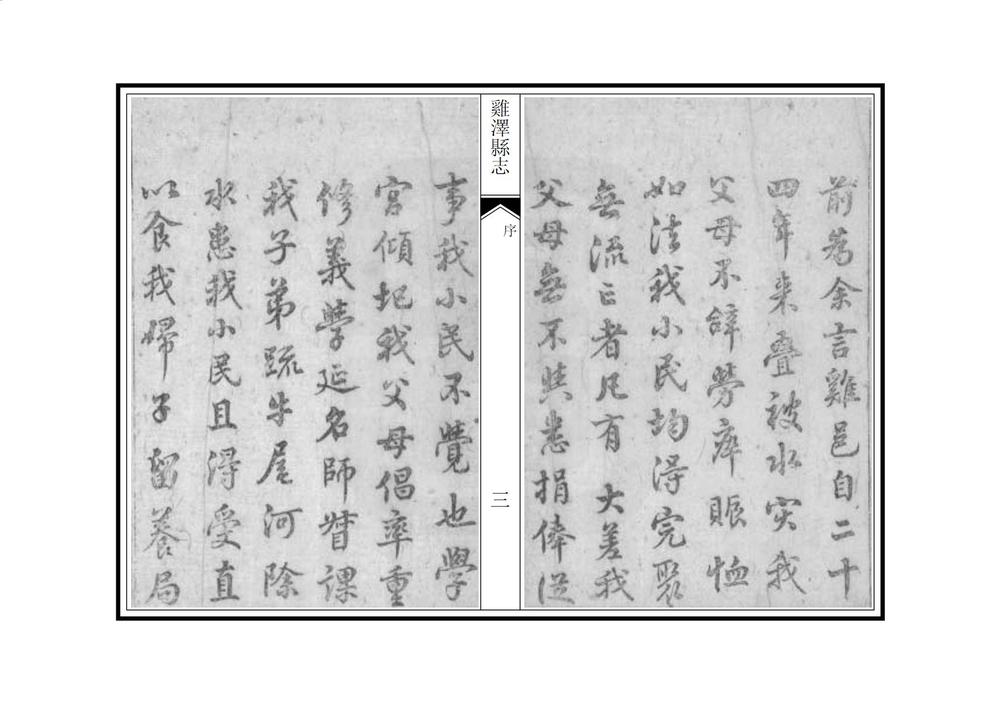 前為余言雞邑自二十
四年來疊被水災我
父母不辭勞瘁賑恤
如法我小民均得完聚
無流亡者凡有大差我
父母無不與悉捐俸從
雞澤縣志
序
三
事我小民不覺也學
宮傾圯我父母倡率重
修義學延名師督課
我子弟疏牛尾河除
水患我小民且得受直
以食我婦子留養局